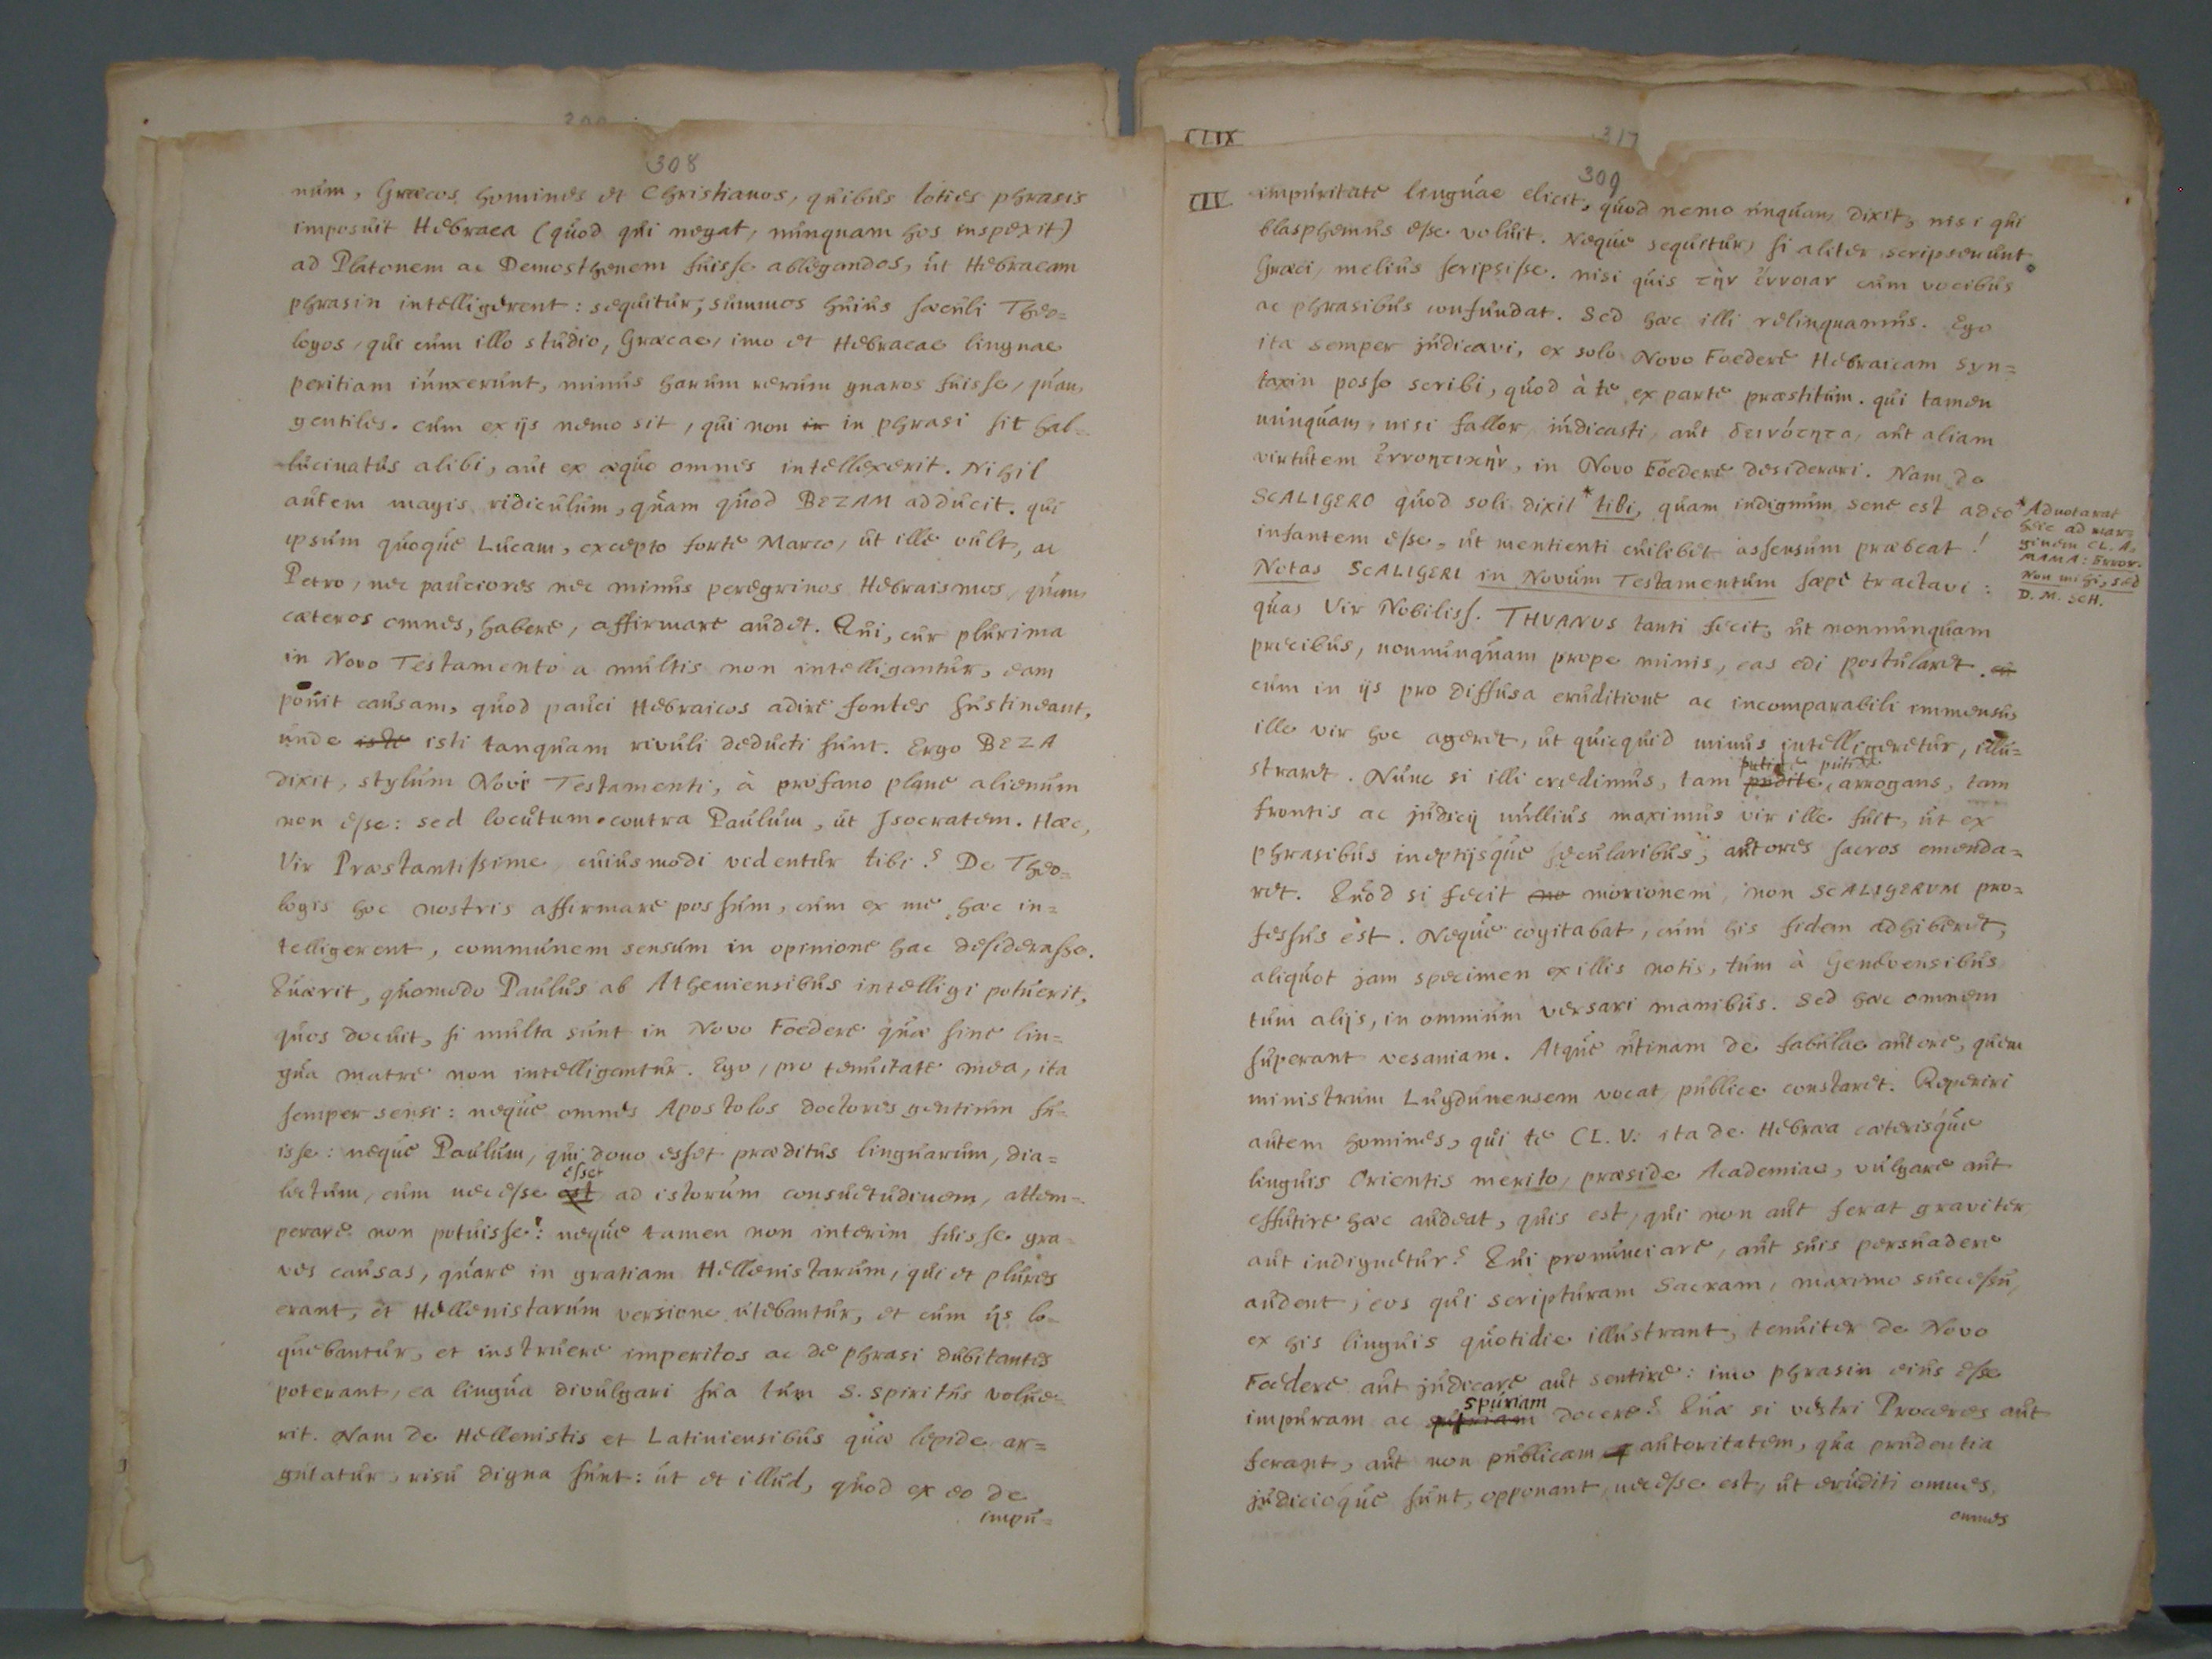 308
num, Græcos homines et Christianos, quibus toties phrasis
imposuit Hebraea (quod qui negat, nunquam hos inspexit)
ad Platonem ac Demosthenem fuisse ablegandos, ut Hebraeam
phrasin intelligerent: sequitur, summos huius sæculi Theo=
logos, qui cum illo studio, Græcae, imo et Hebraeae linguae
peritiam iunxerunt, minus harum rerum gnaros fuisse, quam
gentiles. cum ex ijs nemo sit, qui non in in phrasi sit hal=
lucinatus alibi, aut ex æquo omnes intellexerit. Nihil
autem magis ridiculum, quam quod BEZAM adducit. qui
ipsum quoque Lucam, excepto forte Marco, ut ille vult, ac
Petro, nec pauciores nec minus peregrinos Hebraismos, quam
cæteros omnes, habere, affirmare audet. Qui, cur plurima
in Novo Testamento a multis non intelligantur, eam
ponit causam, quod pauci Hebraicos adire fontes sustineant,
unde iste isti tanquam rivuli deducti sunt. Ergo BEZA
dixit, stylum Novi Testamenti, à profano plane alienum
non esse: sed locutum contra Paulum, ut Isocratem. Hæc,
Vir Præstantissime, cuiusmodi videntur tibi? De Theo=
logis hoc nostris affirmare possum, cum ex me hæc in=
telligerent, communem sensum in opinione hac desiderasse.
Quærit, quomodo Paulus ab Atheniensibus intelligi potuerit,
quos docuit, si multa sunt in Novo Foedere quæ sine lin=
gua matre non intelligantur. Ego, pro tenuitate mea, ita
semper sensi: neque omnes Apostolos doctores gentium fu=
isse: neque Paulum, qui dono esset præditus linguarum, dia=
esset
lectum, cum necesse est ad istorum consuetudinem, attem=
perare non potuisse: neque tamen non interim fuisse gra=
ves causas, quare in gratiam Hellenistarum, qui et plures
erant, et Hellenistarum versione utebantur, et cum ijs lo=
quebantur, et instruere imperitos ac de phrasi dubitantes
poterant, ea lingua divulgari sua tum S. Spiritus volue=
rit. Nam de Hellenistis et Latiniensibus quæ lepide ar=
gutatur, risu digna sunt: ut et illud, quod ex eo de
impu=
CLIX
317
309
CLV
impuritate linguae elicit, quod nemo unquam dixit, nisi qui
blasphemus esse voluit. Neque sequitur, si aliter scripserunt
Græci, melius scripsisse. nisi quis τὴν ἔννοιαν cum vocibus
ac phrasibus confundat. Sed hæc illi relinquamus. Ego
ita semper judicavi, ex solo Novo Foedere Hebraicam syn=
taxin posse scribi, quod à te ex parte præstitum. qui tamen
nunquam, nisi fallor, iudicasti, aut δεινότητα, aut aliam
virtutem ἐννοητικὴν, in Novo Foedere desiderari. Nam de
SCALIGERO quod soli dixit * tibi, quam indignum sene est adeo
infantem esse, ut mentienti cuilibet assensum præbeat!
* Adnotarat
hæc ad mar=
ginem CL. A=
MAMA: Error.
Non mihi, sed
D. M. SCH.
Notas SCALIGERI in Novum Testamentum sæpe tractavi:
quas Vir Nobiliss. THUANUS tanti fecit, ut nonnunquam
precibus, nonnunquam prope minis, eas edi postularet.
cum in ijs pro diffusa eruditione ac incomparabili immensus
ille vir hoc ageret, ut quicquid minus intelligeretur, illu=
putide putide
straret. Nunc si illi credimus, tam pudite, arrogans, tam
frontis ac judicij nullius maximus vir ille fuit, ut ex
phrasibus ineptijsque secularibus, autores sacros emenda=
ret. Quod si fecit mo morionem, non SCALIGERUM pro=
fessus est. Neque cogitabat, cum his fidem adhiberet,
aliquot jam specimen ex illis notis, tum à Genevensibus
tum alijs, in omnium versari manibus. Sed hæc omnem
superant vesaniam. Atque utinam de fabulae autore, quem
ministrum Lugdunensem vocat publice constaret. Reperiri
autem homines, qui te CL. V. ita de Hebræa cæterisque
linguis Orientis merito, præside Academiae, vulgare aut
effutire hæc audeat, quis est, qui non aut ferat graviter
aut indignetur? Qui pronunciare, aut suis persuadere
audent, eos qui scripturam Sacram, maximo successu,
ex his linguis quotidie illustrant, tenuiter de Novo
Foedere aut judicare aut sentire: imo phrasin eius esse
spuriam
impuram ac docere? Quæ si vestri Proceres aut
ferant, aut non publicam autoritatem, qua prudentia
judicioque sunt, opponant, necesse est, ut eruditi omnes,
omnes